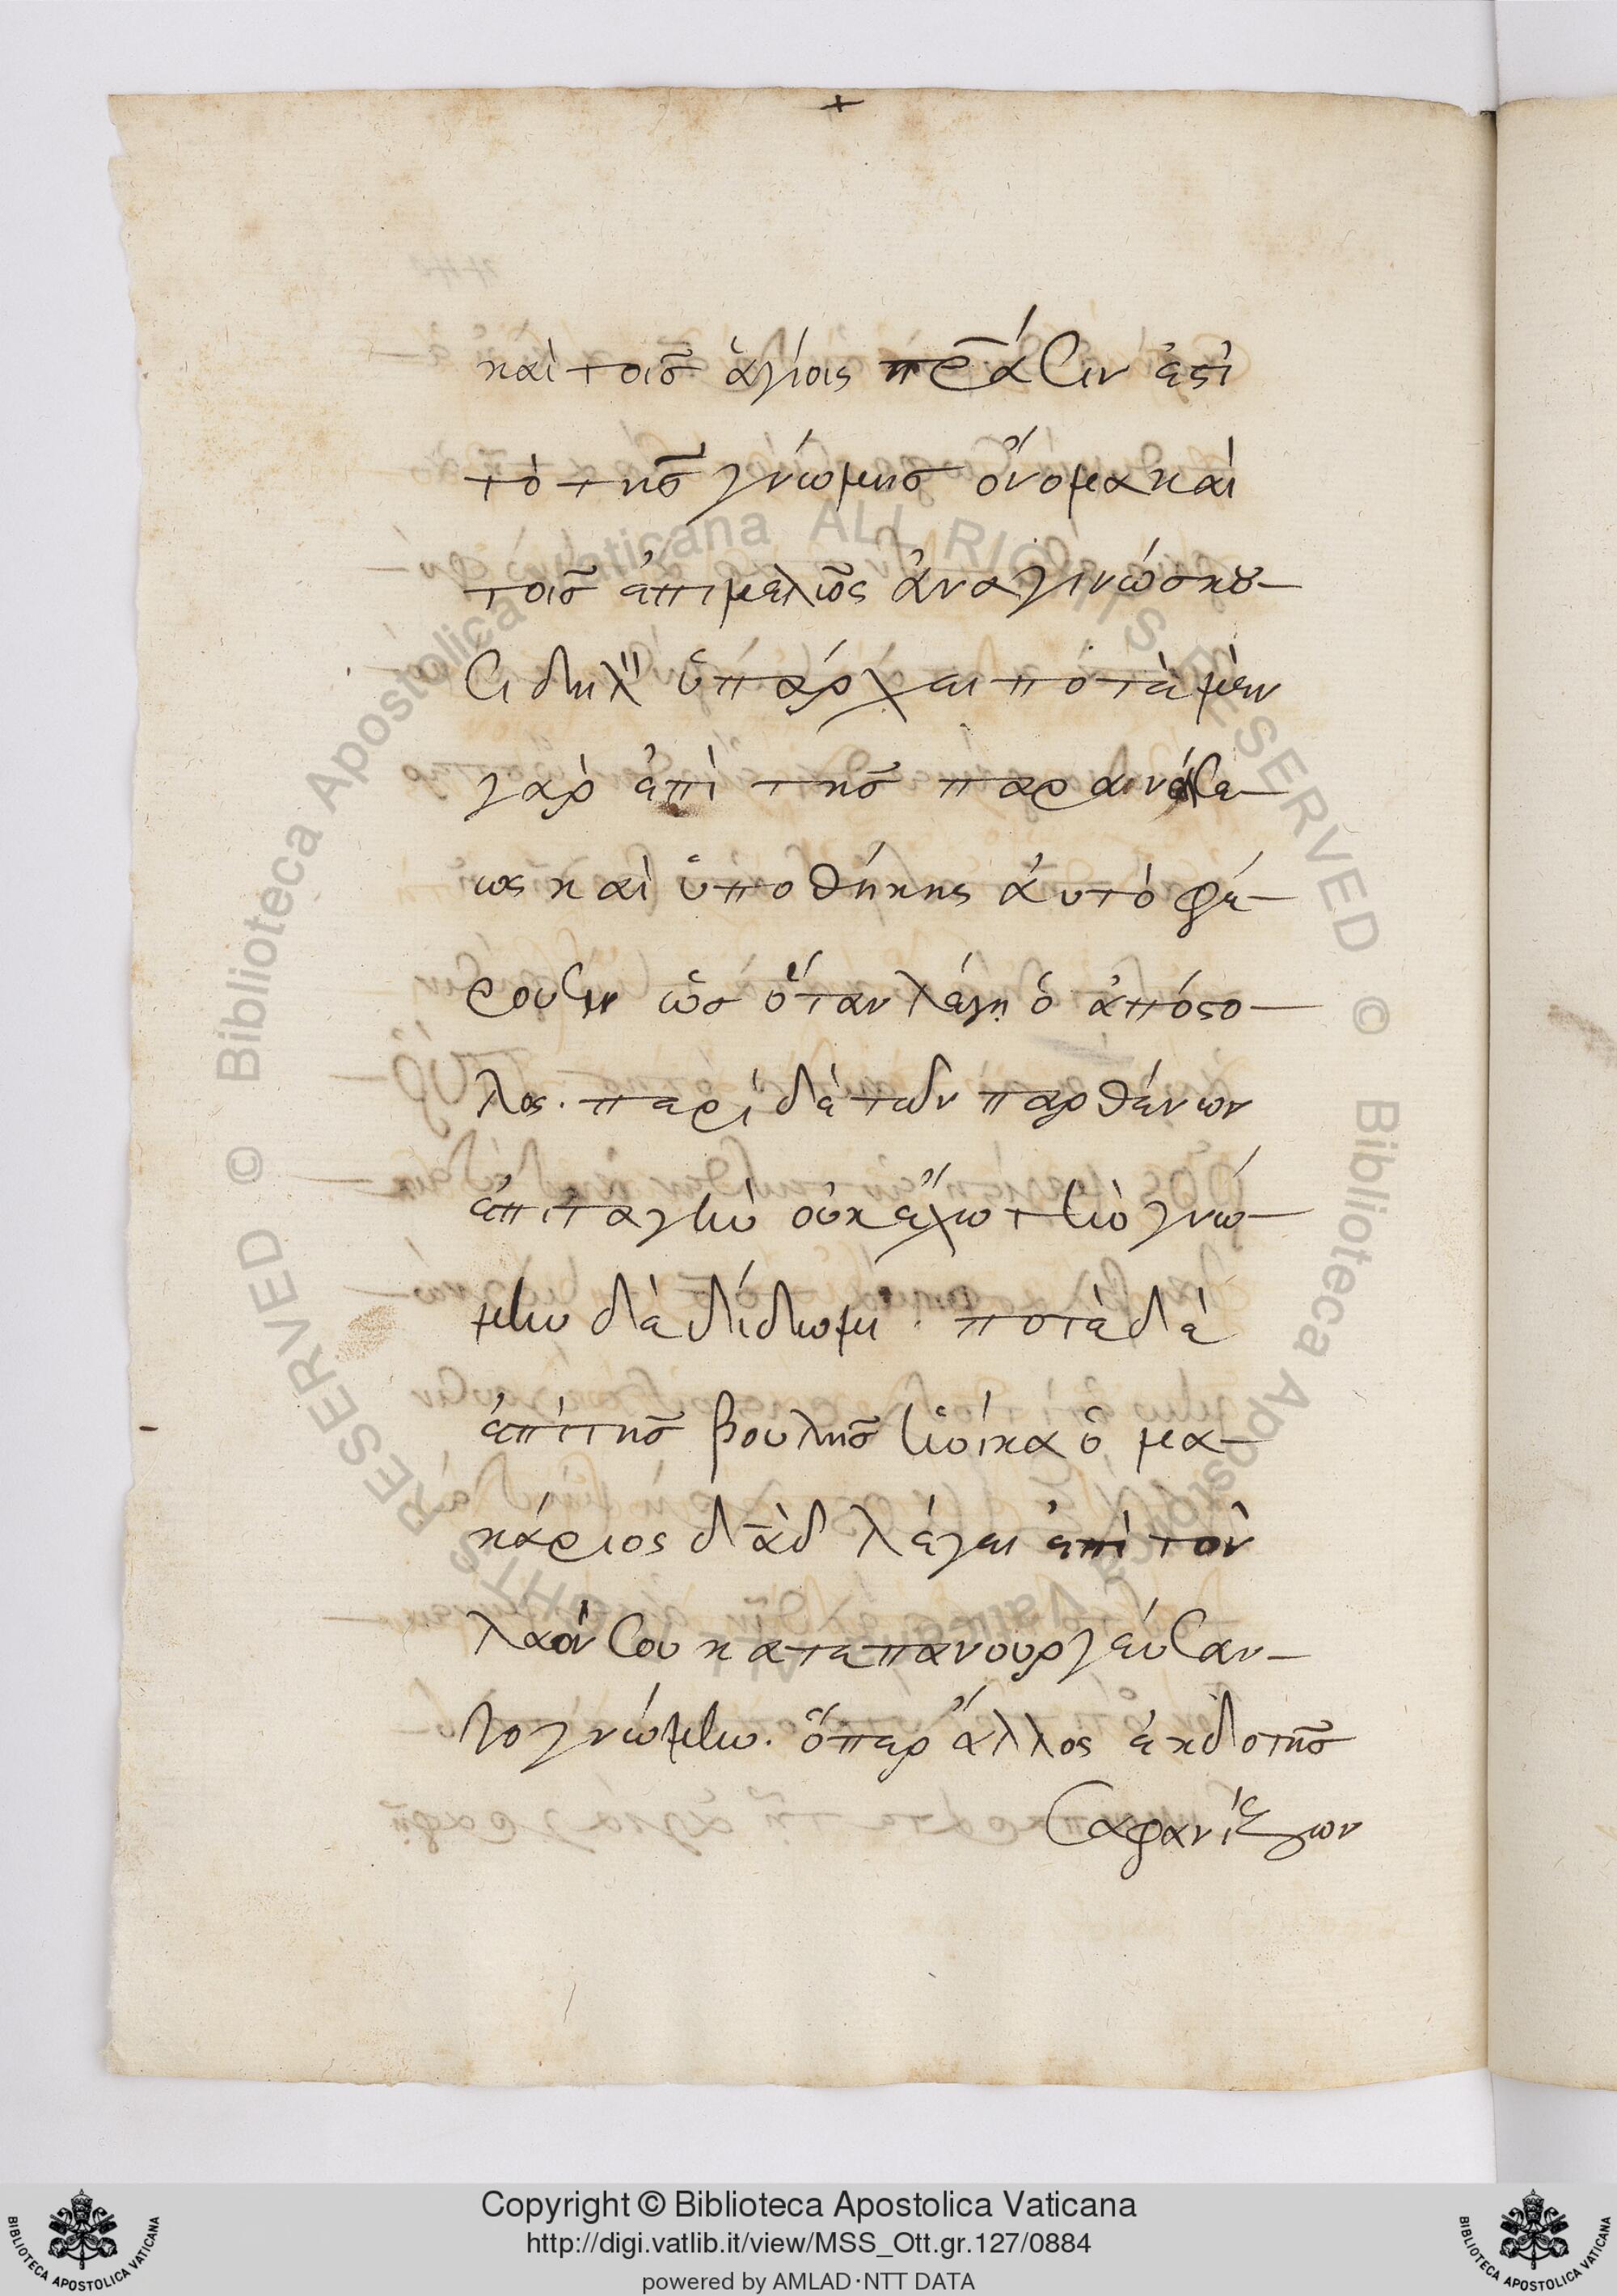 +
καὶ τοῖσ ἁγίοις πρ̅άσιν ἐστὶ
τὸ τῆσ γνώμησ ὄνομα καὶ
τοῖσ ἐπιμελῶς ἀναγινώσκου-
σι δῆλον ὑπάρχει ποτὲ μὲν
γὰρ ἐπὶ τῆσ παραινέσε-
ως καὶ ὑποθήκης ἀυτὸ φέ-
ρουσιν ὡσ ὅταν λέγη ὁ ἀπόστο-
λος. περὶ δὲ τῶν παρθένων
ἐπιταγὴν οὐκ ἔχω τὴν γνώ-
μην δὲ δίδωμι. ποτὲ δὲ
ἐπὶ τῆσ βουλῆσ ἡνίκα ὁ μα-
κάριος δ̅α̅δ̅ λέγει ἐπὶ τὸν
λαόν σου κατεπανουργεύσαν-
το γνώμην. ὅπερ ἄλλος ἐκδοτὴσ
σαφανίζων
© Biblioteca Apostolica Vaticana ALL RIGHTS RESERVED
© Biblioteca Apostolica Vaticana ALL RIGHTS RESERVED
Copyright © Biblioteca Apostolica Vaticana
http://digi.vatlib.it/view/MSS_Ott.gr.127/0884
powered by AMLAD·NTT DATA
BIBLIOTECA APOSTOLICA VATICANA
BIBLIOTECA APOSTOLICA VATICANA